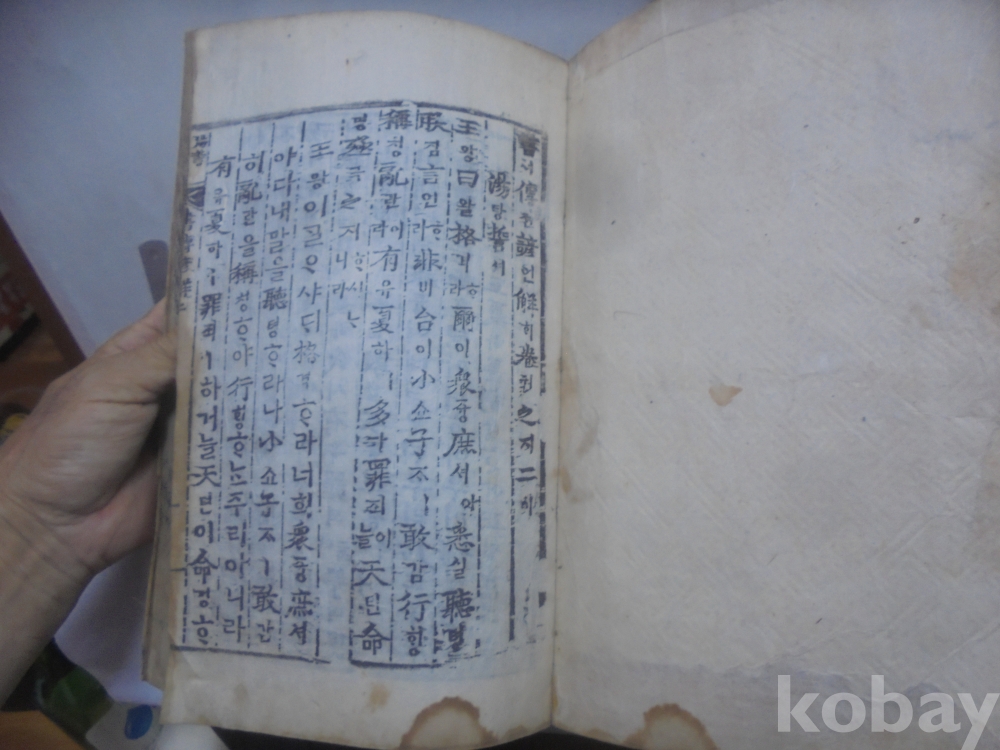 書셔傳젼諺언解ᄒᆡ卷권之지二이
湯탕誓셔
王왕曰왈格격ᄒᆞ라爾이衆즁庶셔아悉실聽텽
朕짐言언ᄒᆞ라非비台이小쇼子ᄌᆞㅣ敢감行ᄒᆡᆼ
稱칭亂란이라有유夏하ㅣ多다罪죄이늘天텬命
명殛극之지ᄒᆞ시ᄂᆞ니라
王왕이ᄀᆞᆯᄋᆞ샤ᄃᆡ格격ᄒᆞ라너희衆즁庶셔
아다내말을聽텽ᄒᆞ라나小쇼子ᄌᆞㅣ敢감
히亂란을稱칭ᄒᆞ야行ᄒᆡᆼᄒᆞᄂᆞᆫ주리아니라
有유夏하ㅣ罪죄ㅣ하거늘天텬이命명ᄒᆞ
kobay